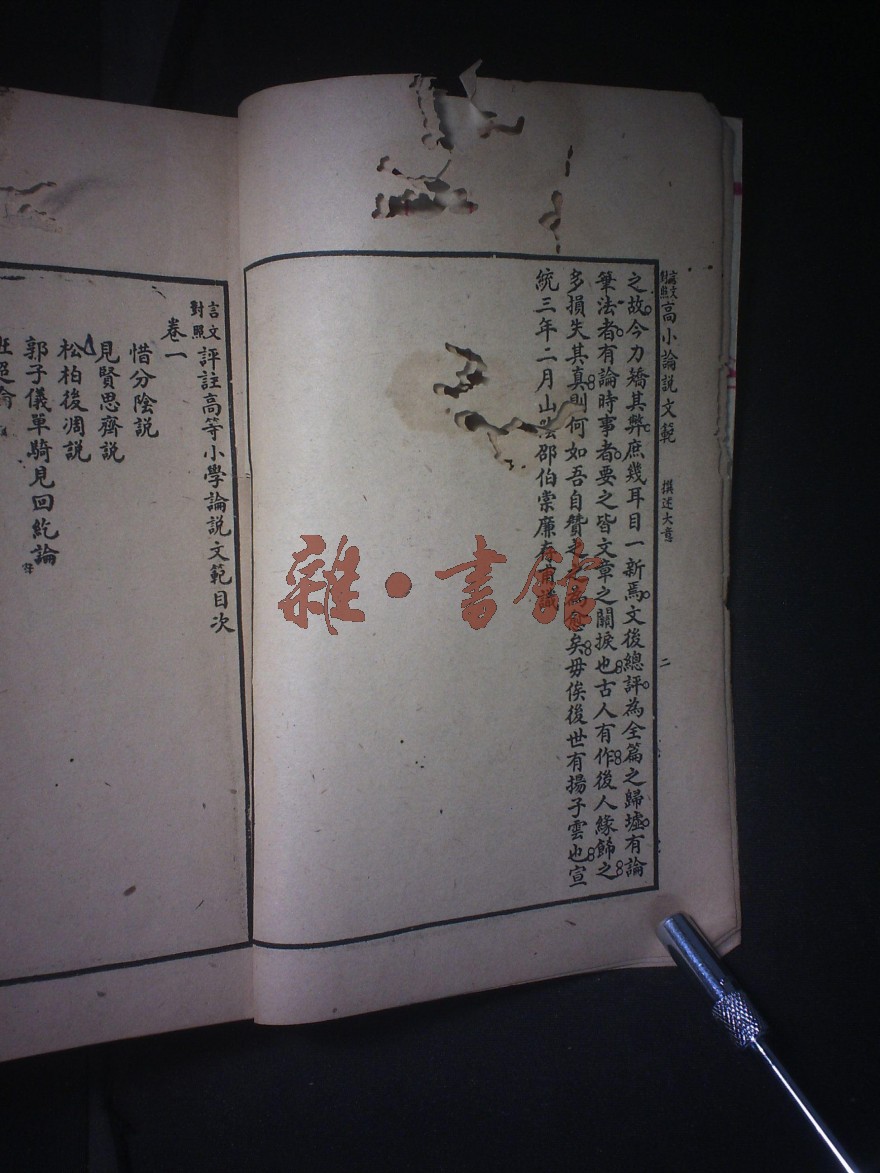 言文對照高小論說文範 撰述大意 二
之故今力矯其弊庶幾耳目一新焉文後總評為全篇之歸墟有論
筆法者有論時事者要之皆文章之關捩也古人有作後人緣飾之
多損失其真則何如吾自贊之為愈矣毋俟後世有揚子雲也宣
統三年二月山陰邵伯棠廉存甫識
言文對照評註高等小學論說文範目次
卷一
惜分陰說
見賢思齊說
松柏後凋說
郭子儀單騎見回紇論
雜·書館